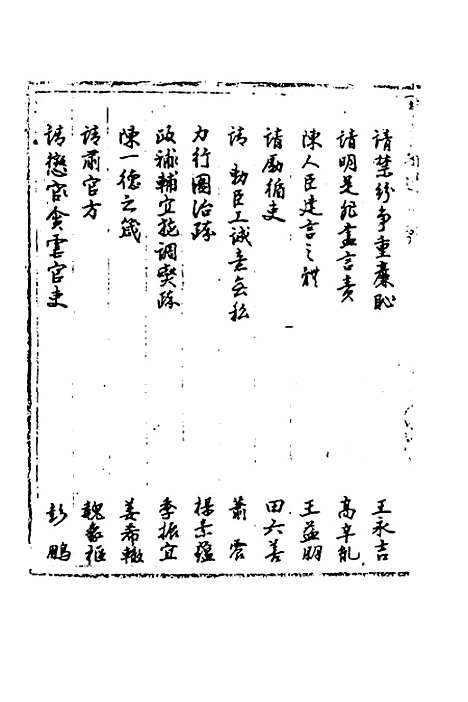 請禁紛爭重廉恥 王永吉
請明是非盡言責 高辛胤
陳人臣建言之體 王益朋
請勵循吏 田六善
請勅臣工誠意無私 蕭震
力行圖治疏 楊素蘊
政術輔宜施調燮疏 季振宜
陳一德之箴 姜希轍
請肅官方 魏象樞
請懲官貪害官吏 彭鵬